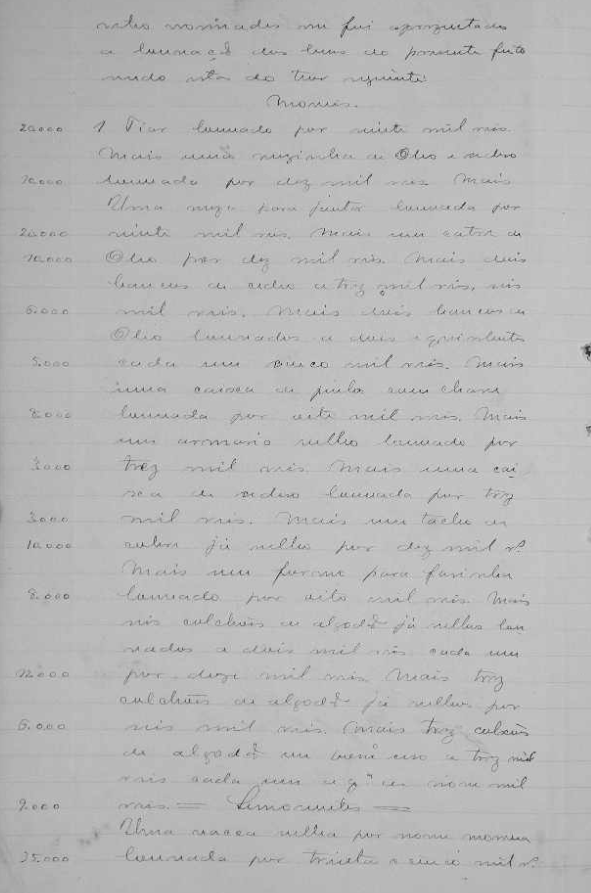 nados me foi aprezentado
a louvação dos bens do prezente
sendo do teor seguinte
Moveis.
20.000 1 Tiar louvado por vinte mil reis.
Mais uma mezinha de Oleo e sedro
10.000 louvada por dez mil reis. Mais
Uma meza para jantar louvada por
20.000 vinte mil reis. Mais um catre de
10.000 Oleo por dez mil reis. Mais dois
bancos de cedro a trez mil reis, seis
6.000 mil reis. Mais dois bancos de
Oleo louvados a dois e quinhentos
5.000 cada um cinco mil reis. Mais
uma caixa de sem chave
8.000 louvada por oito mil reis. Mais
um armario velho louvado por
3.000 trez mil reis. Mais uma cai
xa de sedro louvada por trez
3.000 mil reis. Mais um tacho de
10.000 cobre já velho por dez mil rs
Mais um forno para farinha
8.000 louvado por oito mil reis. Mais
seis colchões de algodão já velhos lou
vados a dois mil reis cada um
12.000 por doze mil reis. Mais trez
colchões de algodão já velhos por
6.000 seis mil reis. Mais trez colxões
de algodão em uso a trez mil
reis cada um de nove mil
9.000 reis. = Semoventes =
Uma vacca velha por nome
35.000 louvada por trinta e cinco mil rs.